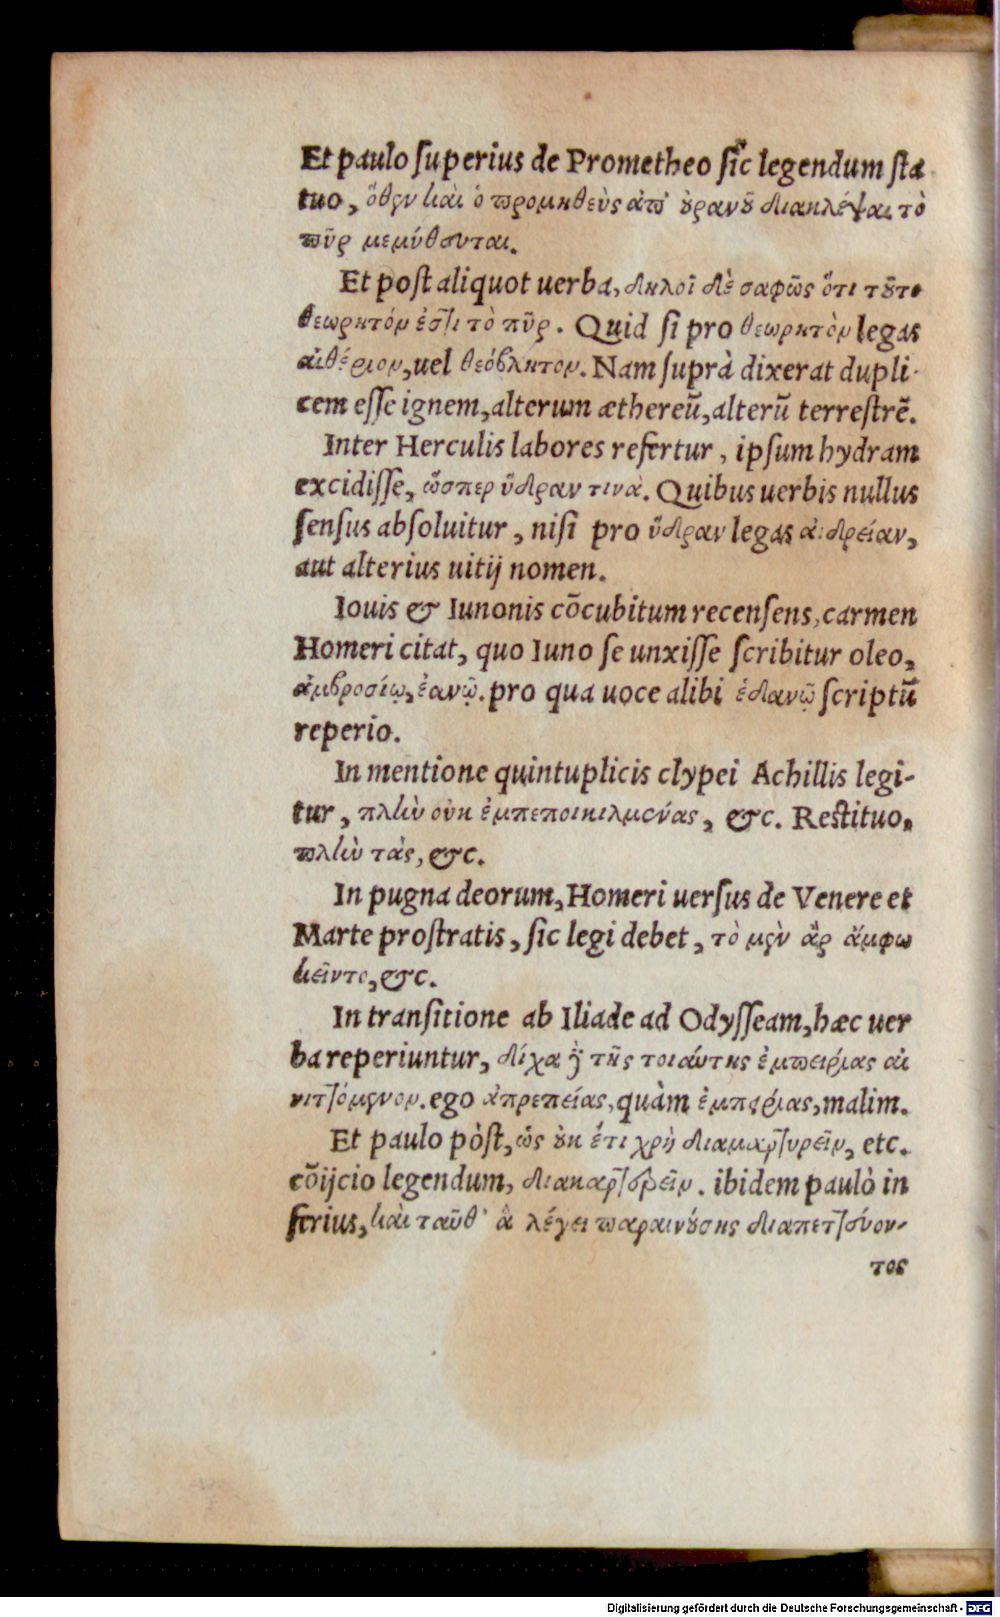 Et paulo ſuperius de Prometheo ſic legendum ſta
tuo, ὅθεν καὶ ὁ προμηθεὺς ἀπ' ȣ̓ρανȣ͂ διακλέψαι τὸ
πῦρ μεμύθευται.
Et poſt aliquot uerba, δηλοῖ δὲ σαφῶς ὅτι τȣ͂το
θεωρητόν ἐστι τὸ πῦρ. Quid ſi pro θεωρητὸν legas
αἰθέριον, uel θεόβλητον. Nam ſuprà dixerat dupli-
cem eſſe ignem, alterum æthereū, alterū terreſtrē.
Inter Herculis labores refertur, ipſum hydram
excidiſſe, ὥσπερ ὕδραν τινὰ. Quibus uerbis nullus
ſenſus abſoluitur, niſi pro ὕδραν legas ἀϊδρείαν,
aut alterius uitij nomen.
Iouis & Iunonis cōcubitum recenſens, carmen
Homeri citat, quo Iuno ſe unxiſſe ſcribitur oleo,
ἀμβροσίῳ, ἑανῷ. pro qua uoce alibi ἑδανῷ ſcriptū
reperio.
In mentione quintuplicis clypei Achillis legi-
tur, πλὴν οὐκ ἐμπεποικιλμένας, &c. Reſtituo,
πλὴν τὰς, &c.
In pugna deorum, Homeri uerſus de Venere et
Marte proſtratis, ſic legi debet, τὸ μὲν ἂρ ἄμφω
κεῖντο, &c.
In tranſitione ab Iliade ad Odyſſeam, hæc uer
ba reperiuntur, δίχα τῆς τοιάυτης ἐμπειρίας αἰ
νιττόμενον. ego ἀπρεπείας, quàm ἐμπειρίας, malim.
Et paulo pòſt, ὡς ȣ̓κ ἔτι χρὴ διαμαρτυρεῖν, etc.
cōijcio legendum, διακαρτερεῖν. ibidem paulò in
ferius, καὶ ταῦθ' ἃ λέγει παραινȣ́σης
τος
Digitalisierung gefördert durch die Deutsche Forschungsgemeinschaft - DFG